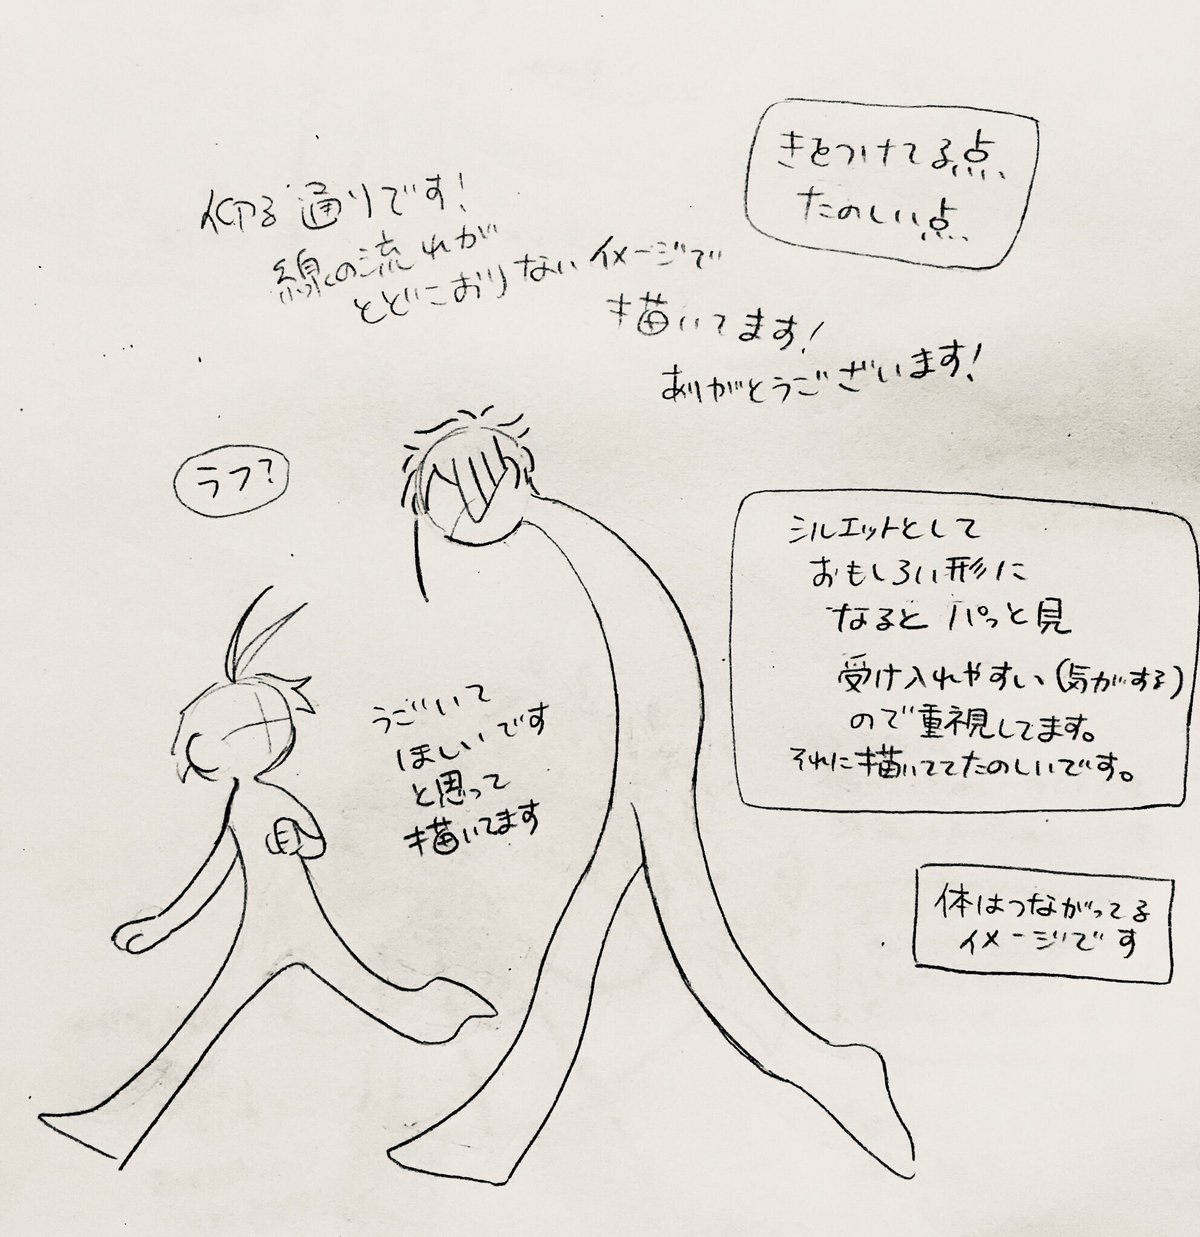 きをつけてる点、
たのしい点、
仰る通りです!
線の流れが
とどこおりないイメージで
描いてます!
ありがとうございます!
ラフ?
シルエットとして
おもしろい形に
なると パっと見
受け入れやすい(気がする)
ので重視してます。
それに描いててたのしいです。
うごいて
ほしいです
と思って
描いてます
体はつながってる
イメージです